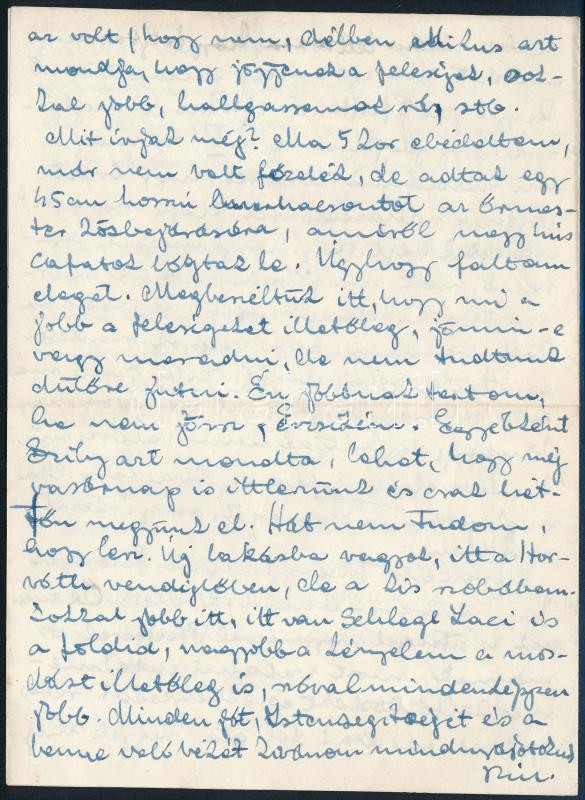 az volt, hogy nem, délben Miklus azt
mondja, hogy jöjjenek a feleségek, sok-
kal jobb, hallgassanak rá, stb.
Mit írjak még? Ma 5 kor ebédeltem,
már nem volt főzelék, de adtak egy
45 cm hosszú marhacsontot az őrmes-
ter közbejárására, amiről nagy hús
cafatok lógtak le. Úgyhogy faltam
eleget. Megbeszéltük itt, hogy mi a
jobb a feleségeket illetőleg, jönni-e
vagy maradni, de nem tudtunk
dűlőre jutni. Én jobbnak tartom,
ha nem jössz, Évzsikém. Egyebként
azt mondta, lehet, hogy még
vasárnap is itt leszünk és csak hét-
főn megyünk el. Hát nem tudom,
hogy lesz. Új lakásba vagyok, itt a Hor-
váth vendéglőben, de a kis szobában.
Sokkal jobb itt, itt van Schlegl Laci is
a földid, nagyobb a kényelem a mos-
dást illetőleg is, szóval mindenképpen
jobb. Minden jót, Isten segítségét és a
benne való békét kívánom mindnyájatoknak